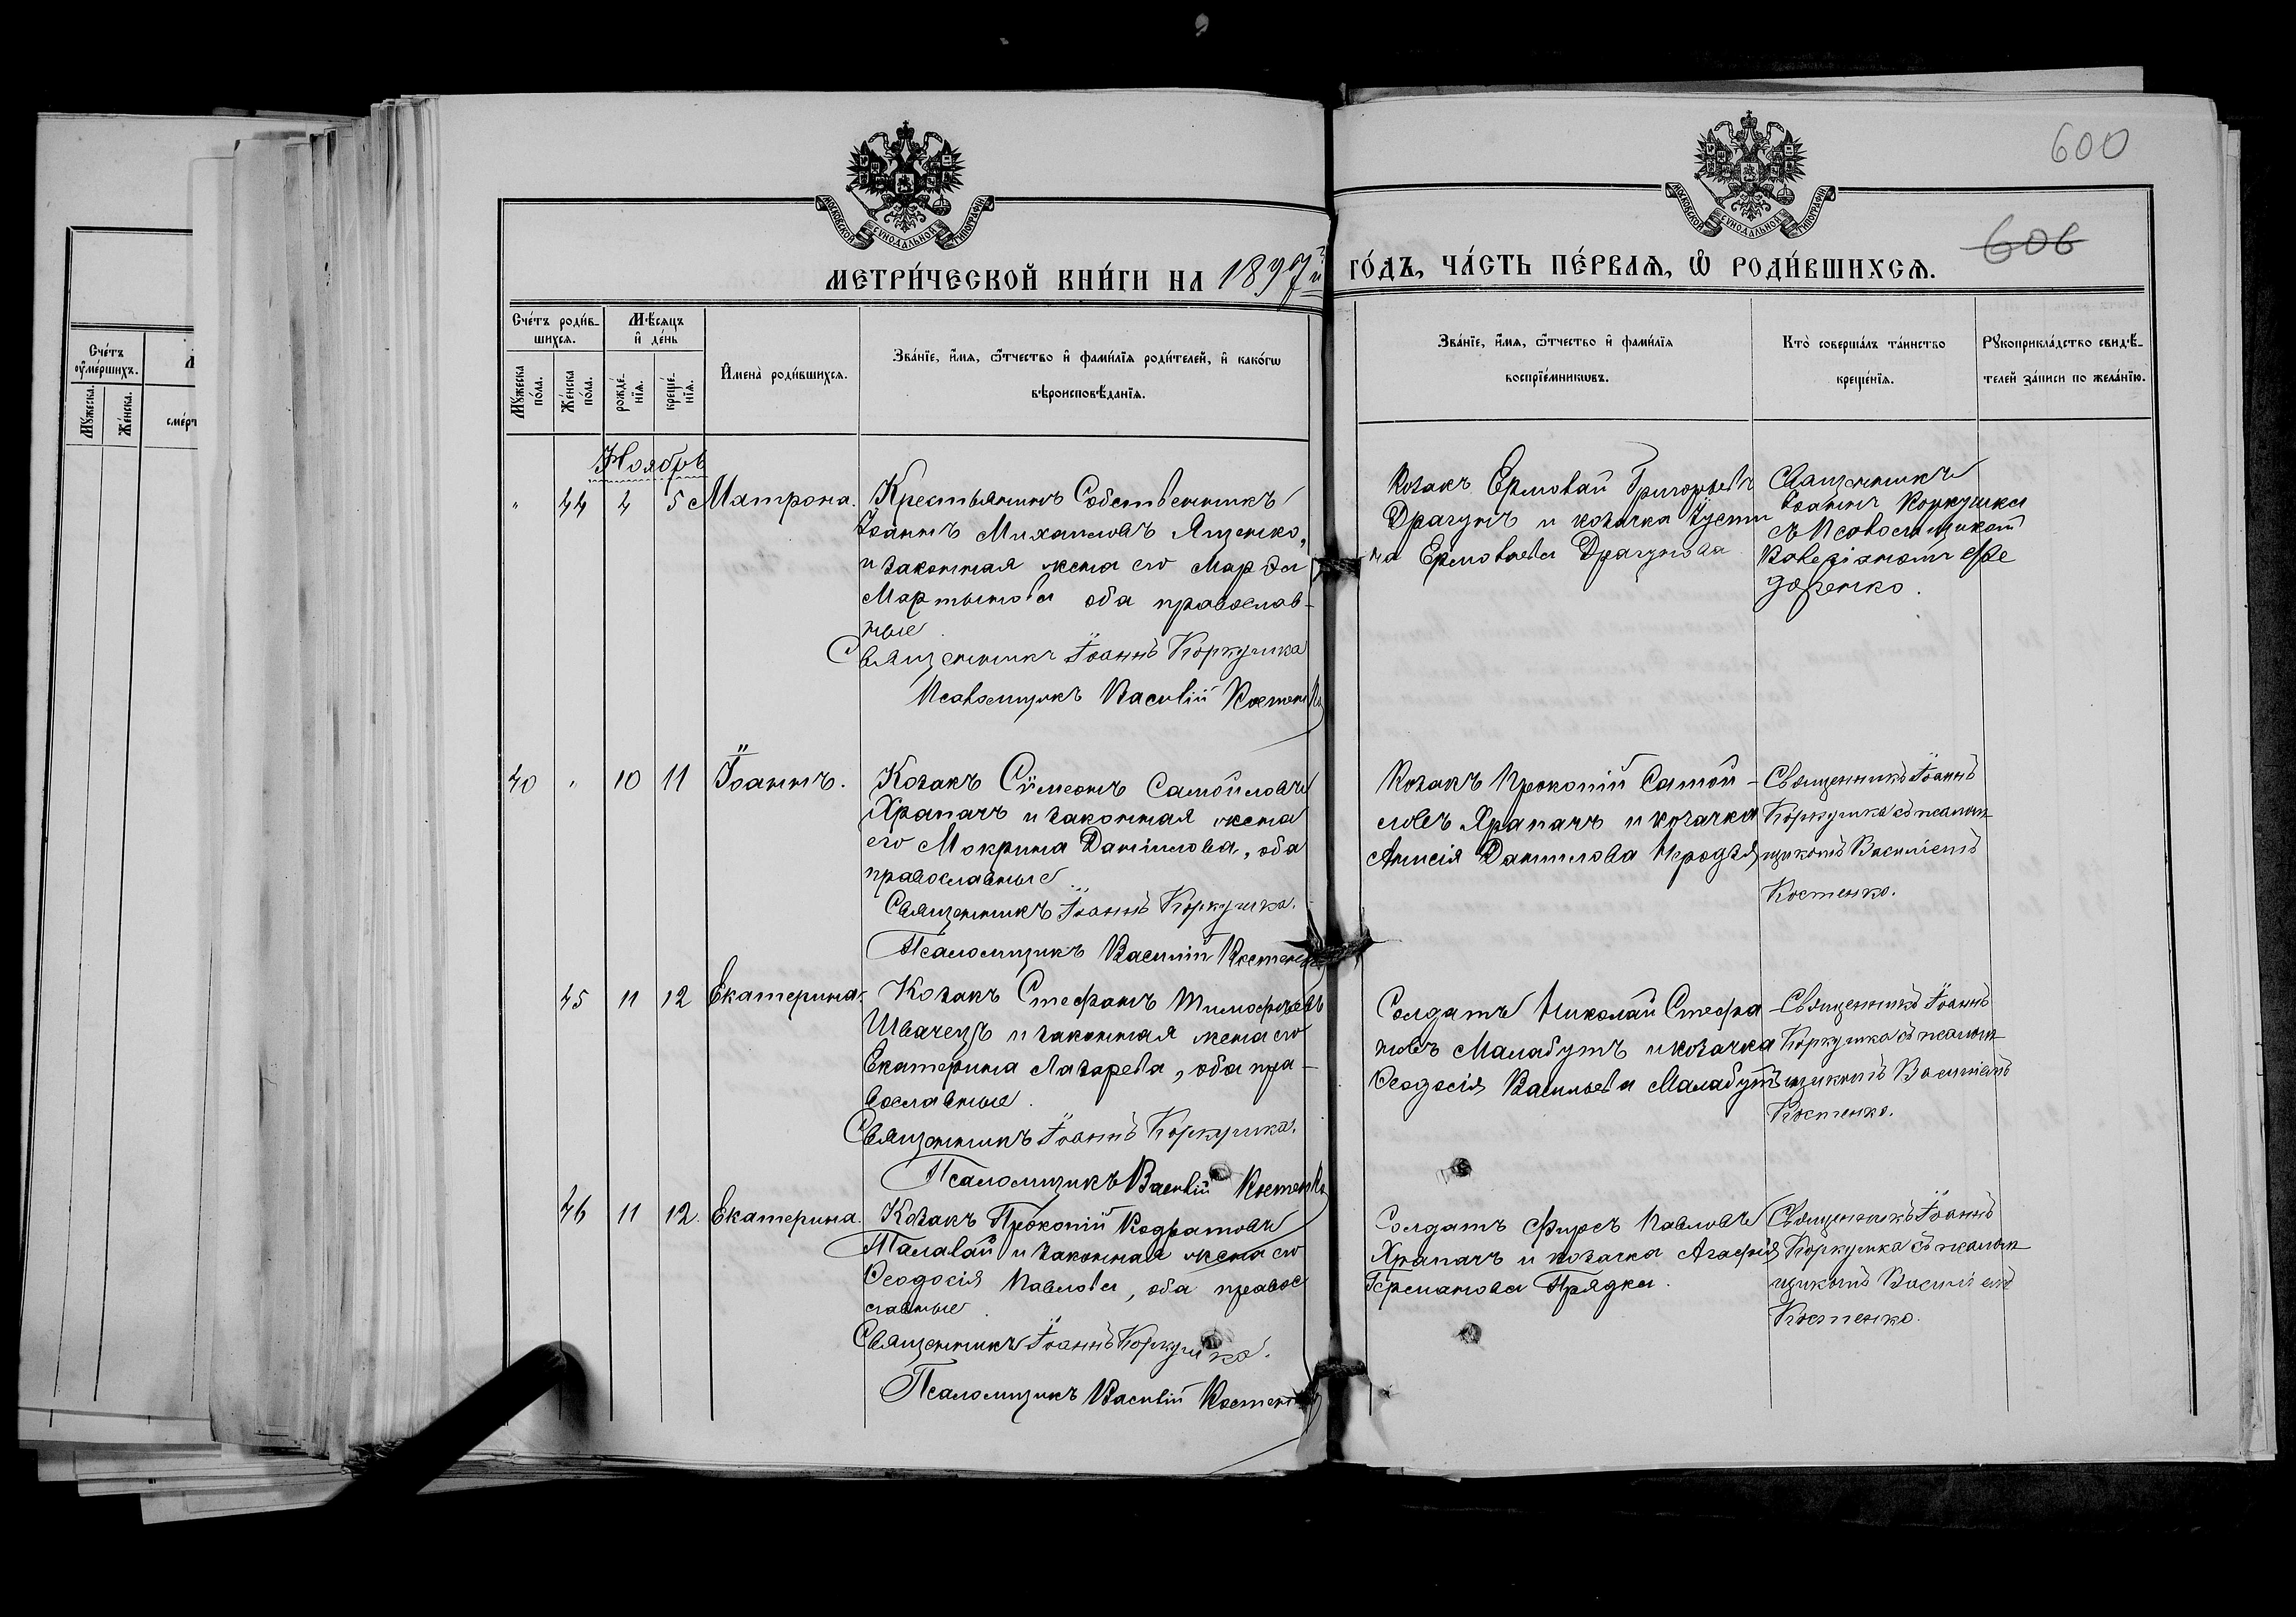 600
606
МОСКОВСКОЙ СѴНОДАЛЬНОЙ ТИПОГРАФІИ
МОСКОВСКОЙ СѴНОДАЛЬНОЙ ТИПОГРАФІИ
МЕТРИ́ЧЕСКОЙ КНИ́ГИ НА 1897й ГО́ДЪ, ЧА́СТЬ ПЕ́РВАѦ, Ѡ РОДИ́ВШИХСѦ.
Сче́тъ роди́в-
шихсѧ.
Мѣ́сѧцъ
и҆ де́нь
Мꙋ́жеска по́ла.
Же́нска по́ла.
рожде́-
нїѧ.
креще́-
нїѧ.
И҆мена̀ роди́вшихсѧ.
Зва́нїе, и҆́мѧ, ѻ҆́тчество и҆ фами́лїѧ роди́телей, и҆ како́гѡ
вѣроисповѣ́данїѧ.
Зва́нїе, и҆́мѧ, ѻ҆́тчество и҆ фами́лїѧ
воспрїе́мникѡвъ.
Кто̀ соверша́лъ та́инство
креще́нїѧ.
Рꙋкоприкла́дство свидѣ́-
телей за́писи по жела́нїю.
Сче́тъ
ᲂу҆ме́ршихъ.
Мꙋ́жеска.
Же́нска.
сме́рт
Ноябрь
" 44 4 5 Матрона. Крестьянинъ Собственникъ
Іоаннъ Михаиловъ Ященко,
и законная жена его Марѳа
Мартынова оба православ-
ные.
Священникъ Іоаннъ Коркушка
Псаломщикъ Василій Костенко
Козакъ Ермолай Григорьевъ
Драгунъ и козачка Усти
на Ермолаева Драгунова
Священникъ
Іоаннъ Коркушка
съ Псаломщикомъ
Ѳе
доренко.
40 " 10 11 Іоаннъ. Козакъ Сѵмеонъ Самойловъ
Храпачъ и законная жена
его Макрина Даніилова, оба
православные
Священникъ Іоаннъ Коркушка.
Псаломщикъ Василій Костенко
Козакъ Прокопій Самой-
ловъ Храпачъ и козачка
Анисія Даніилова
Священникъ Іоаннъ
Коркушка съ псалом
щикомъ Василіемъ
Костенко.
45 11 12 Екатерина. Козакъ Стефанъ Тимофѣевъ
Швачецъ и законная жена его
Екатерина Лазарева, оба пра-
вославные.
Священникъ Іоаннъ Коркушка.
Псаломщикъ Василій Костенко
Солдатъ Николай Стефа
новъ Малабутъ и козачка
Ѳеодосія Васильева Малабутъ
Священникъ Іоаннъ
Коркушка съ псалом
щикомъ Василіемъ
Костенко.
46 11 12. Екатерина. Козакъ Прокопій Кодратовъ
Палавай и законная жена его
Ѳеодосія Павлова, оба правос
лавные.
Священникъ Іоаннъ Коркушка.
Псаломщикъ Василій Костенко
Солдатъ Фирсъ Павловъ
Храпачъ и козачка Агафія
Германова Прядка.
Священникъ Іоаннъ
Коркушка съ псалом
щикомъ Василіемъ
Костенко.